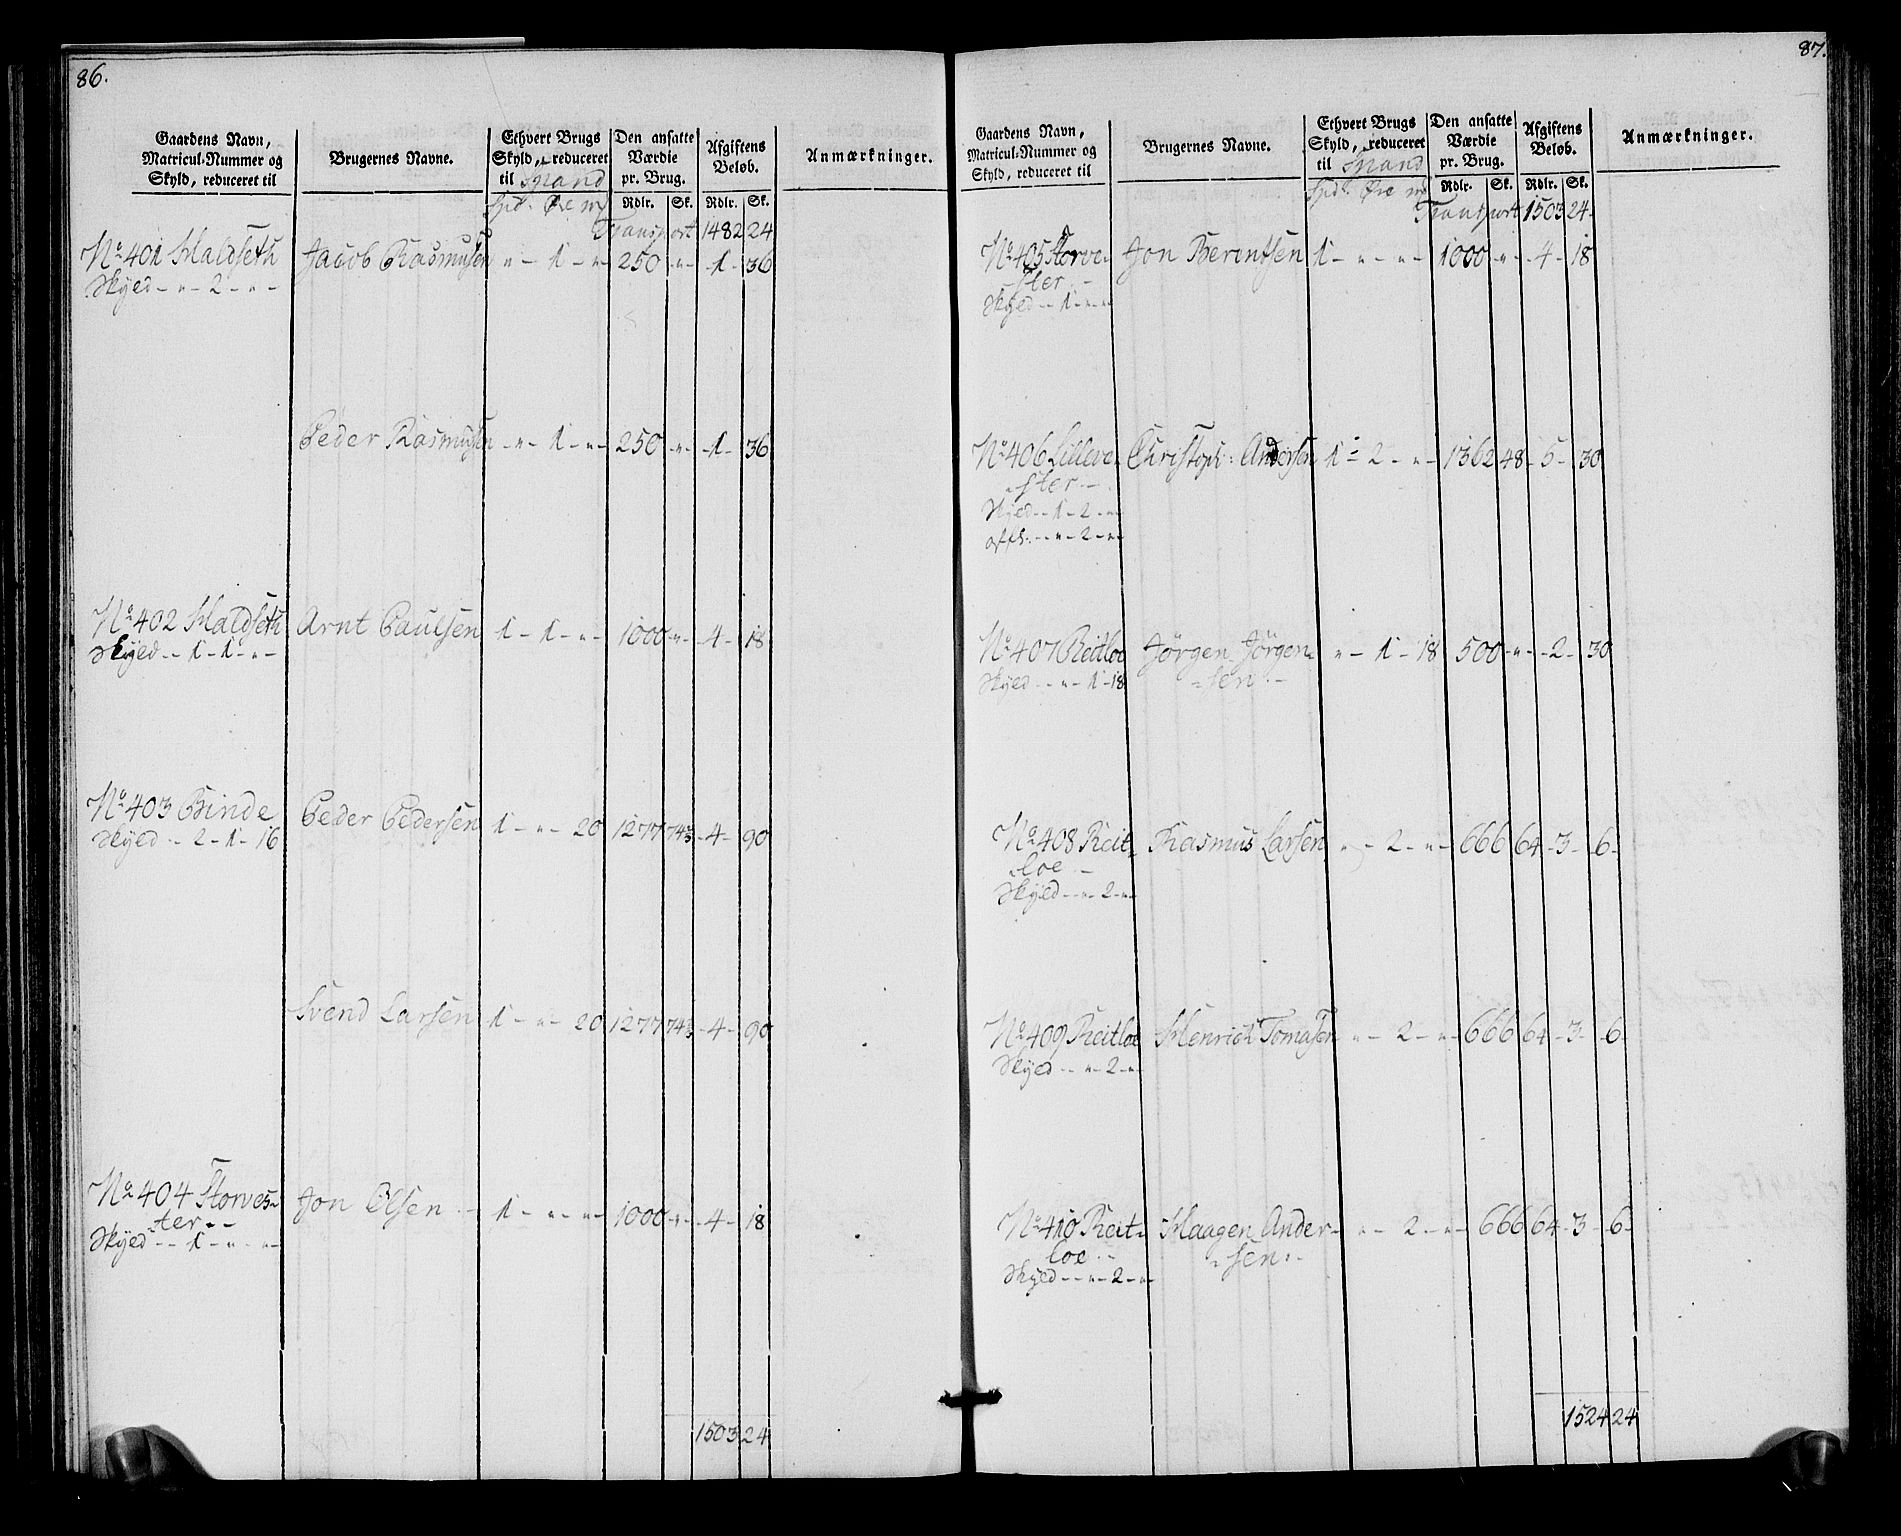 86.
Gaardens Navn, Matricul-Nummer og Skyld, reduceret til
Brugernes Navne.
Ethvert Brugs Skyld, reduceret til Spand
Den ansatte Værdie pr. Brug.
Afgiftens Beløb.
Anmærkninger.
Spd. Øre mk
Rdlr. Sk. Rdlr. Sk.
Transport 1482 24
No 401 Haldseth Jacob Rasmusen „ - 1 - „ 250 - „ - 1 - 36
Skyld - „ - 2 - „ -
Peder Rasmusen - „ - 1 - „ - 250 - „ - 1 - 36
No 402 Haldseth Arnt Paulsen 1 - 1 - „ - 1000 - „ - 4 - 18
Skyld - - 1 - 1 - „ -
No 403 Binde Peder Pedersen 1 - „ - 20 1277 74⅔ - 4 - 90
Skyld - - 2 - 1 - 16
Svend Larsen 1 - „ - 20 1277 74⅔ - 4 - 90
No 404 Storves-
ter - - Jon Olsen 1 - „ - „ - 1000 - „ - 4 - 18
Skyld - - 1 - „ - „ -
1503 24
87.
Gaardens Navn, Matricul-Nummer og Skyld, reduceret til
Brugernes Navne.
Ethvert Brugs Skyld, reduceret til Spand
Den ansatte Værdie pr. Brug.
Afgiftens Beløb.
Anmærkninger.
Spd. Øre mk
Rdlr. Sk. Rdlr. Sk.
Transport 1503 24
No 405 Storve- Jon Berentsen 1 - „ - „ - 1000 - „ - 4 - 18
ster -
Skyld - - 1 - „ - „
No 406 Lilleve- Christoph: Andersen 1 - 2 - „ - 1362 48 - 5 - 30
ster -
Skyld - - 1 - 2 - „
- „ - 2 - „ -
No 407 Reitloe Jørgen Jørgen- „ - 1 - 18 500 - „ - 2 - 30
Skyld - - „ - 1 - 18 sen -
No 408 Reit- Rasmus Larsen „ - 2 - „ - 666 64 - 3 - 6 -
loe -
Skyld - - „ - 2 - „
No 409 Reitloe Henrich Tomasen „ - 2 - „ - 666 64 - 3 - 6 -
Skyld - - „ - 2 - „
No 410 Reit- Haagen Ander- „ - 2 - „ - 666 64 - 3 - 6 -
loe - sen -
Skyld - - „ - 2 - „
1524 24